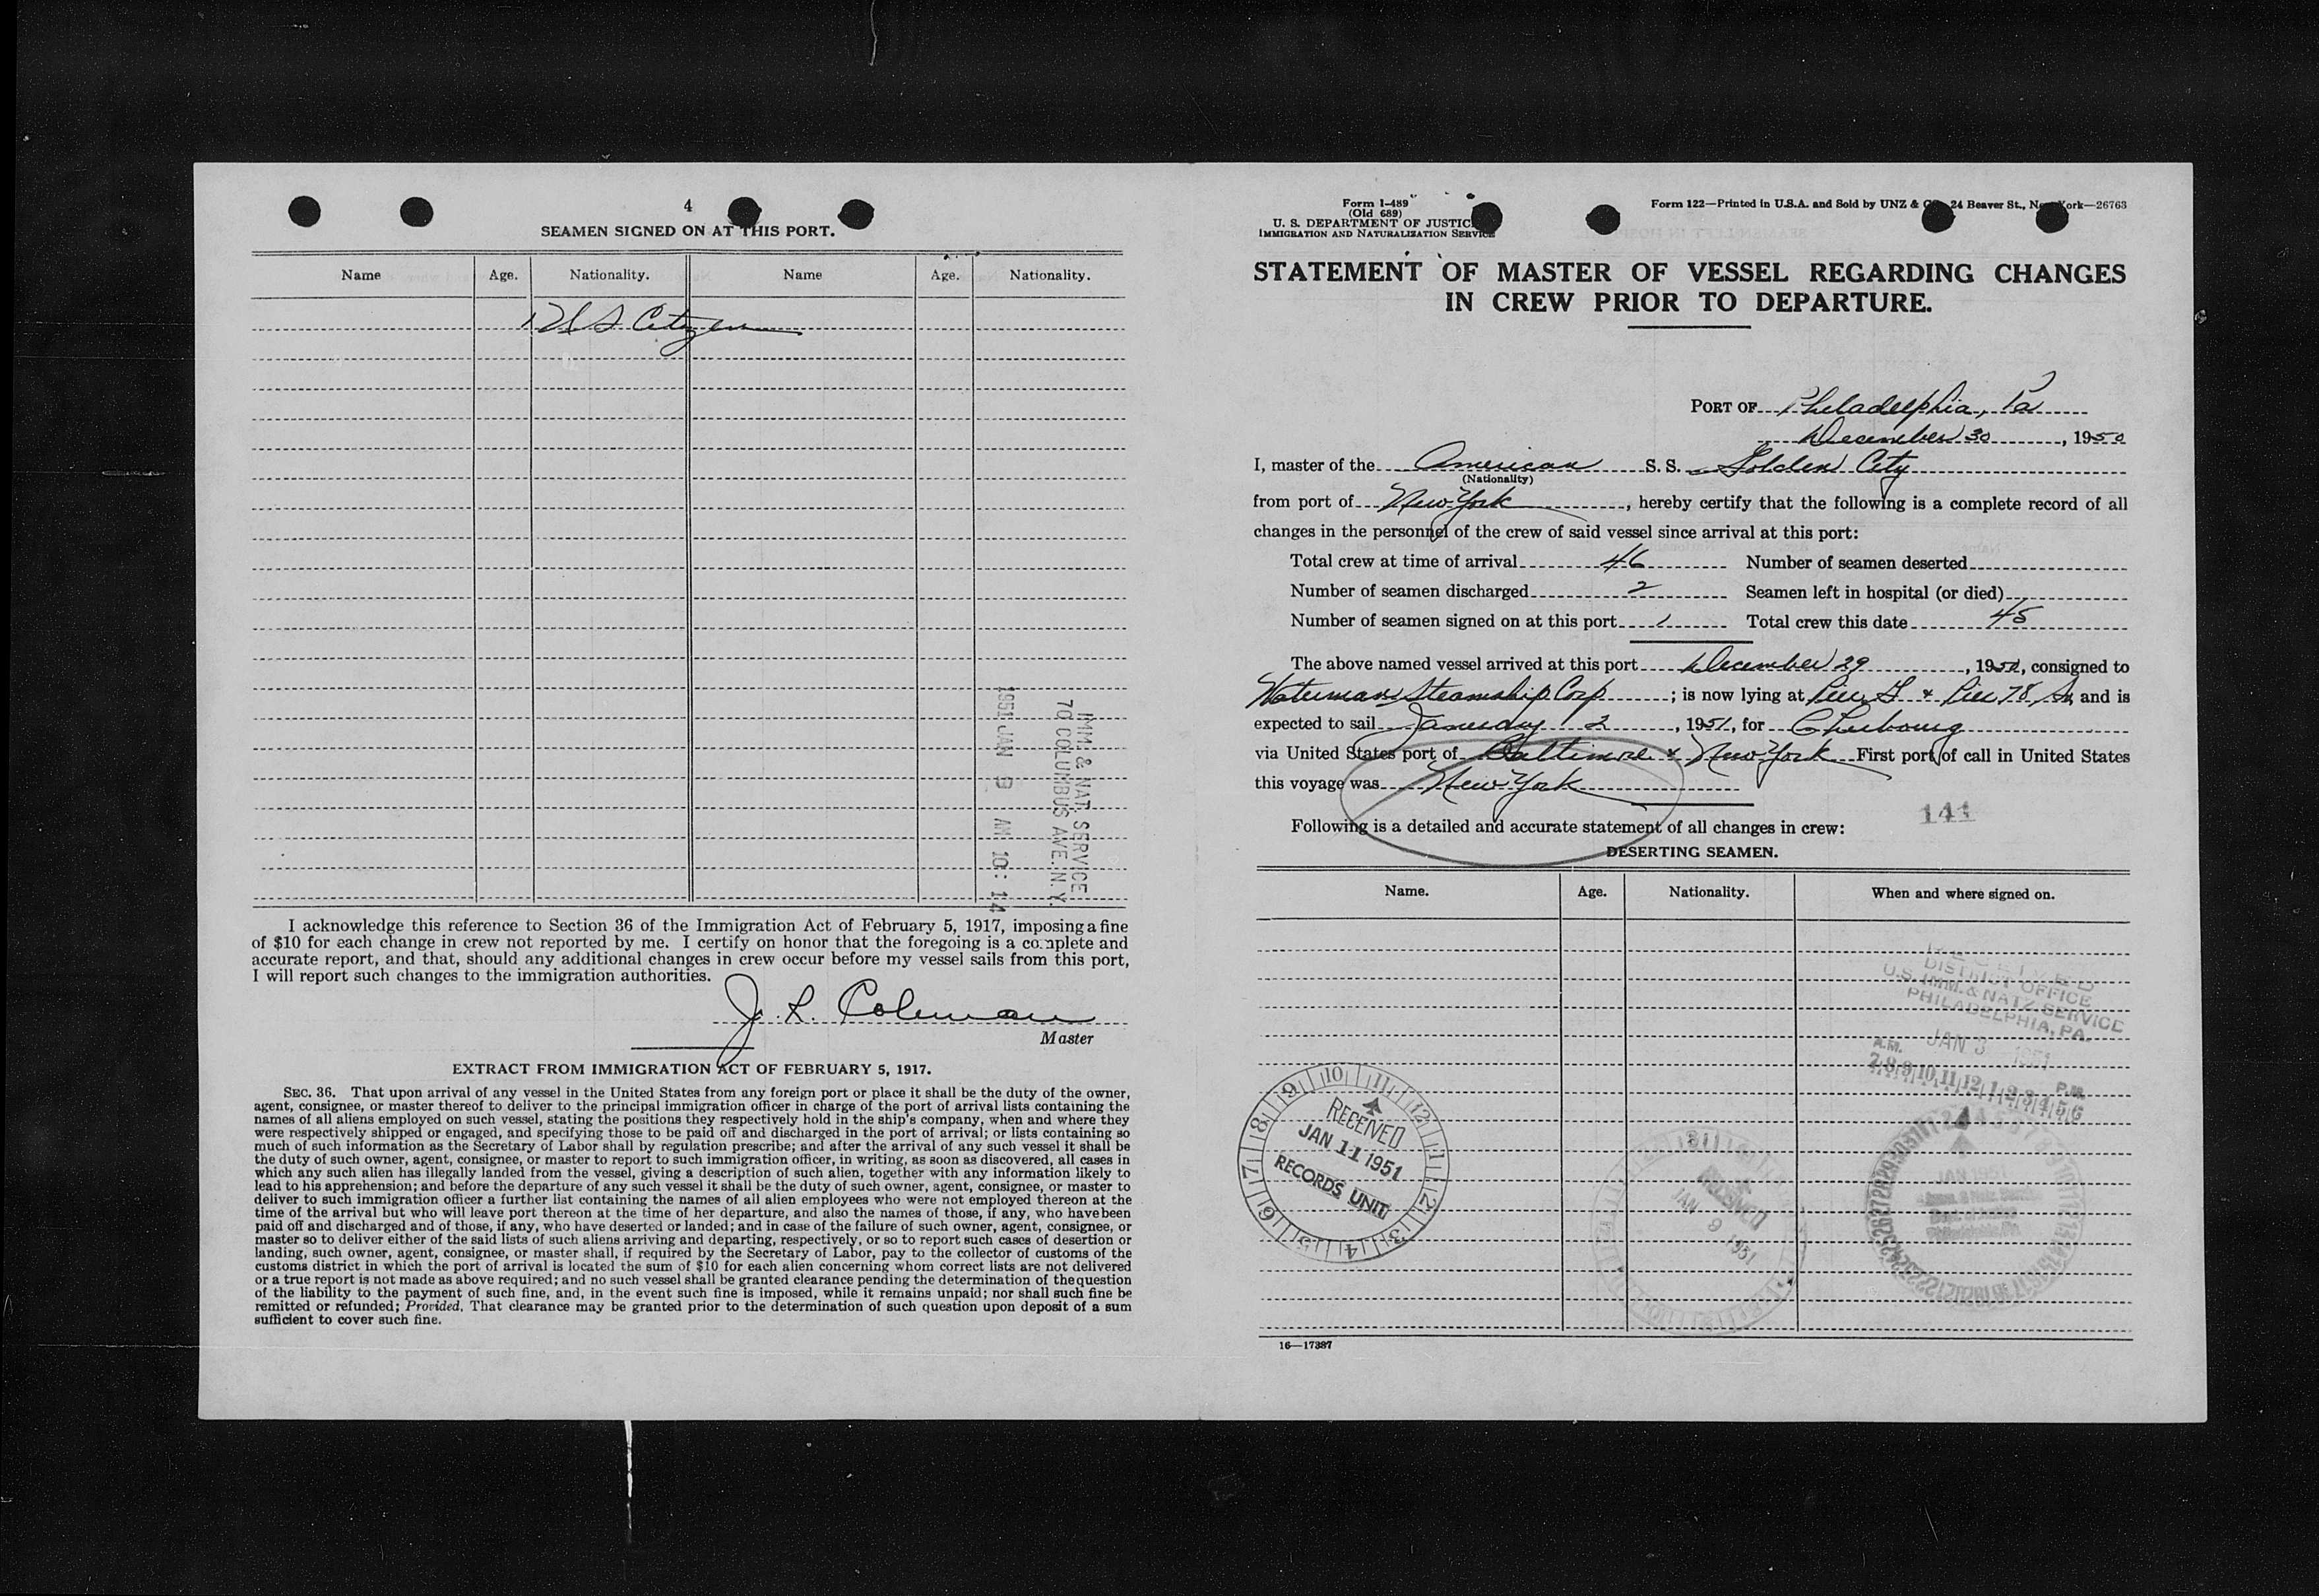 4
SEAMEN SIGNED ON AT THIS PORT.
Name Age. Nationality. Name Age. Nationality.
1 US Citizen
IMM. & NAT. SERVICE
70 COLUMBUS AVE. N. Y.
1951 JAN 9 AM 10: 14
I acknowledge this reference to Section 36 of the Immigration Act of February 5, 1917, imposing a fine
of $10 for each change in crew not reported by me. I certify on honor that the foregoing is a complete and
accurate report, and that, should any additional changes in crew occur before my vessel sails from this port,
I will report such changes to the immigration authorities.
J. L. Coleman
Master
EXTRACT FROM IMMIGRATION ACT OF FEBRUARY 5, 1917.
SEC. 36. That upon arrival of any vessel in the United States from any foreign port or place it shall be the duty of the owner,
agent, consignee, or master thereof to deliver to the principal immigration officer in charge of the port of arrival lists containing the
names of all aliens employed on such vessel, stating the positions they respectively hold in the ship's company, when and where they
were respectively shipped or engaged, and specifying those to be paid off and discharged in the port of arrival; or lists containing so
much of such information as the Secretary of Labor shall by regulation prescribe; and after the arrival of any such vessel it shall be
the duty of such owner, agent, consignee, or master to report to such immigration officer, in writing, as soon as discovered, all cases in
which any such alien has illegally landed from the vessel, giving a description of such alien, together with any information likely to
lead to his apprehension; and before the departure of any such vessel it shall be the duty of such owner, agent, consignee, or master to
deliver to such immigration officer a further list containing the names of all alien employees who were not employed thereon at the
time of the arrival but who will leave port thereon at the time of her departure, and also the names of those, if any, who have been
paid off and discharged and of those, if any, who have deserted or landed; and in case of the failure of such owner, agent, consignee, or
master so to deliver either of the said lists of such aliens arriving and departing, respectively, or so to report such cases of desertion or
landing, such owner, agent, consignee, or master shall, if required by the Secretary of Labor, pay to the collector of customs of the
customs district in which the port of arrival is located the sum of $10 for each alien concerning whom correct lists are not delivered
or a true report is not made as above required; and no such vessel shall be granted clearance pending the determination of the question
of the liability to the payment of such fine, and, in the event such fine is imposed, while it remains unpaid; nor shall such fine be
remitted or refunded; Provided, That clearance may be granted prior to the determination of such question upon deposit of a sum
sufficient to cover such fine.
Form I-489
(Old 689)
U. S. DEPARTMENT OF JUSTICE
IMMIGRATION AND NATURALIZATION SERVICE
Form 122—Printed in U.S.A. and Sold by UNZ & CO. 24 Beaver St., New York—26763
STATEMENT OF MASTER OF VESSEL REGARDING CHANGES
IN CREW PRIOR TO DEPARTURE.
PORT OF Philadelphia, Pa
December 30, 1950
I, master of the American S. S. Golden City
(Nationality)
from port of New York, hereby certify that the following is a complete record of all
changes in the personnel of the crew of said vessel since arrival at this port:
Total crew at time of arrival 46 Number of seamen deserted
Number of seamen discharged 2 Seamen left in hospital (or died)
Number of seamen signed on at this port 1 Total crew this date 45
The above named vessel arrived at this port December 29, 1950, consigned to
Waterman Steamship Corp; is now lying at Pier G & Pier 78, and is
expected to sail January 2, 1951, for Cherbourg
via United States port of Baltimore & New York First port of call in United States
this voyage was New York
144
Following is a detailed and accurate statement of all changes in crew:
DESERTING SEAMEN.
Name. Age. Nationality. When and where signed on.
RECEIVED
DISTRICT OFFICE
U.S. IMM. & NATZ. SERVICE
PHILADELPHIA, PA.
JAN 3 1951
A.M. P.M.
7 8 9 10 11 12 1 2 3 4 5 6
RECEIVED
JAN 11 1951
RECORDS UNIT
RECEIVED
JAN 9 1951
JAN 1951
16—17387